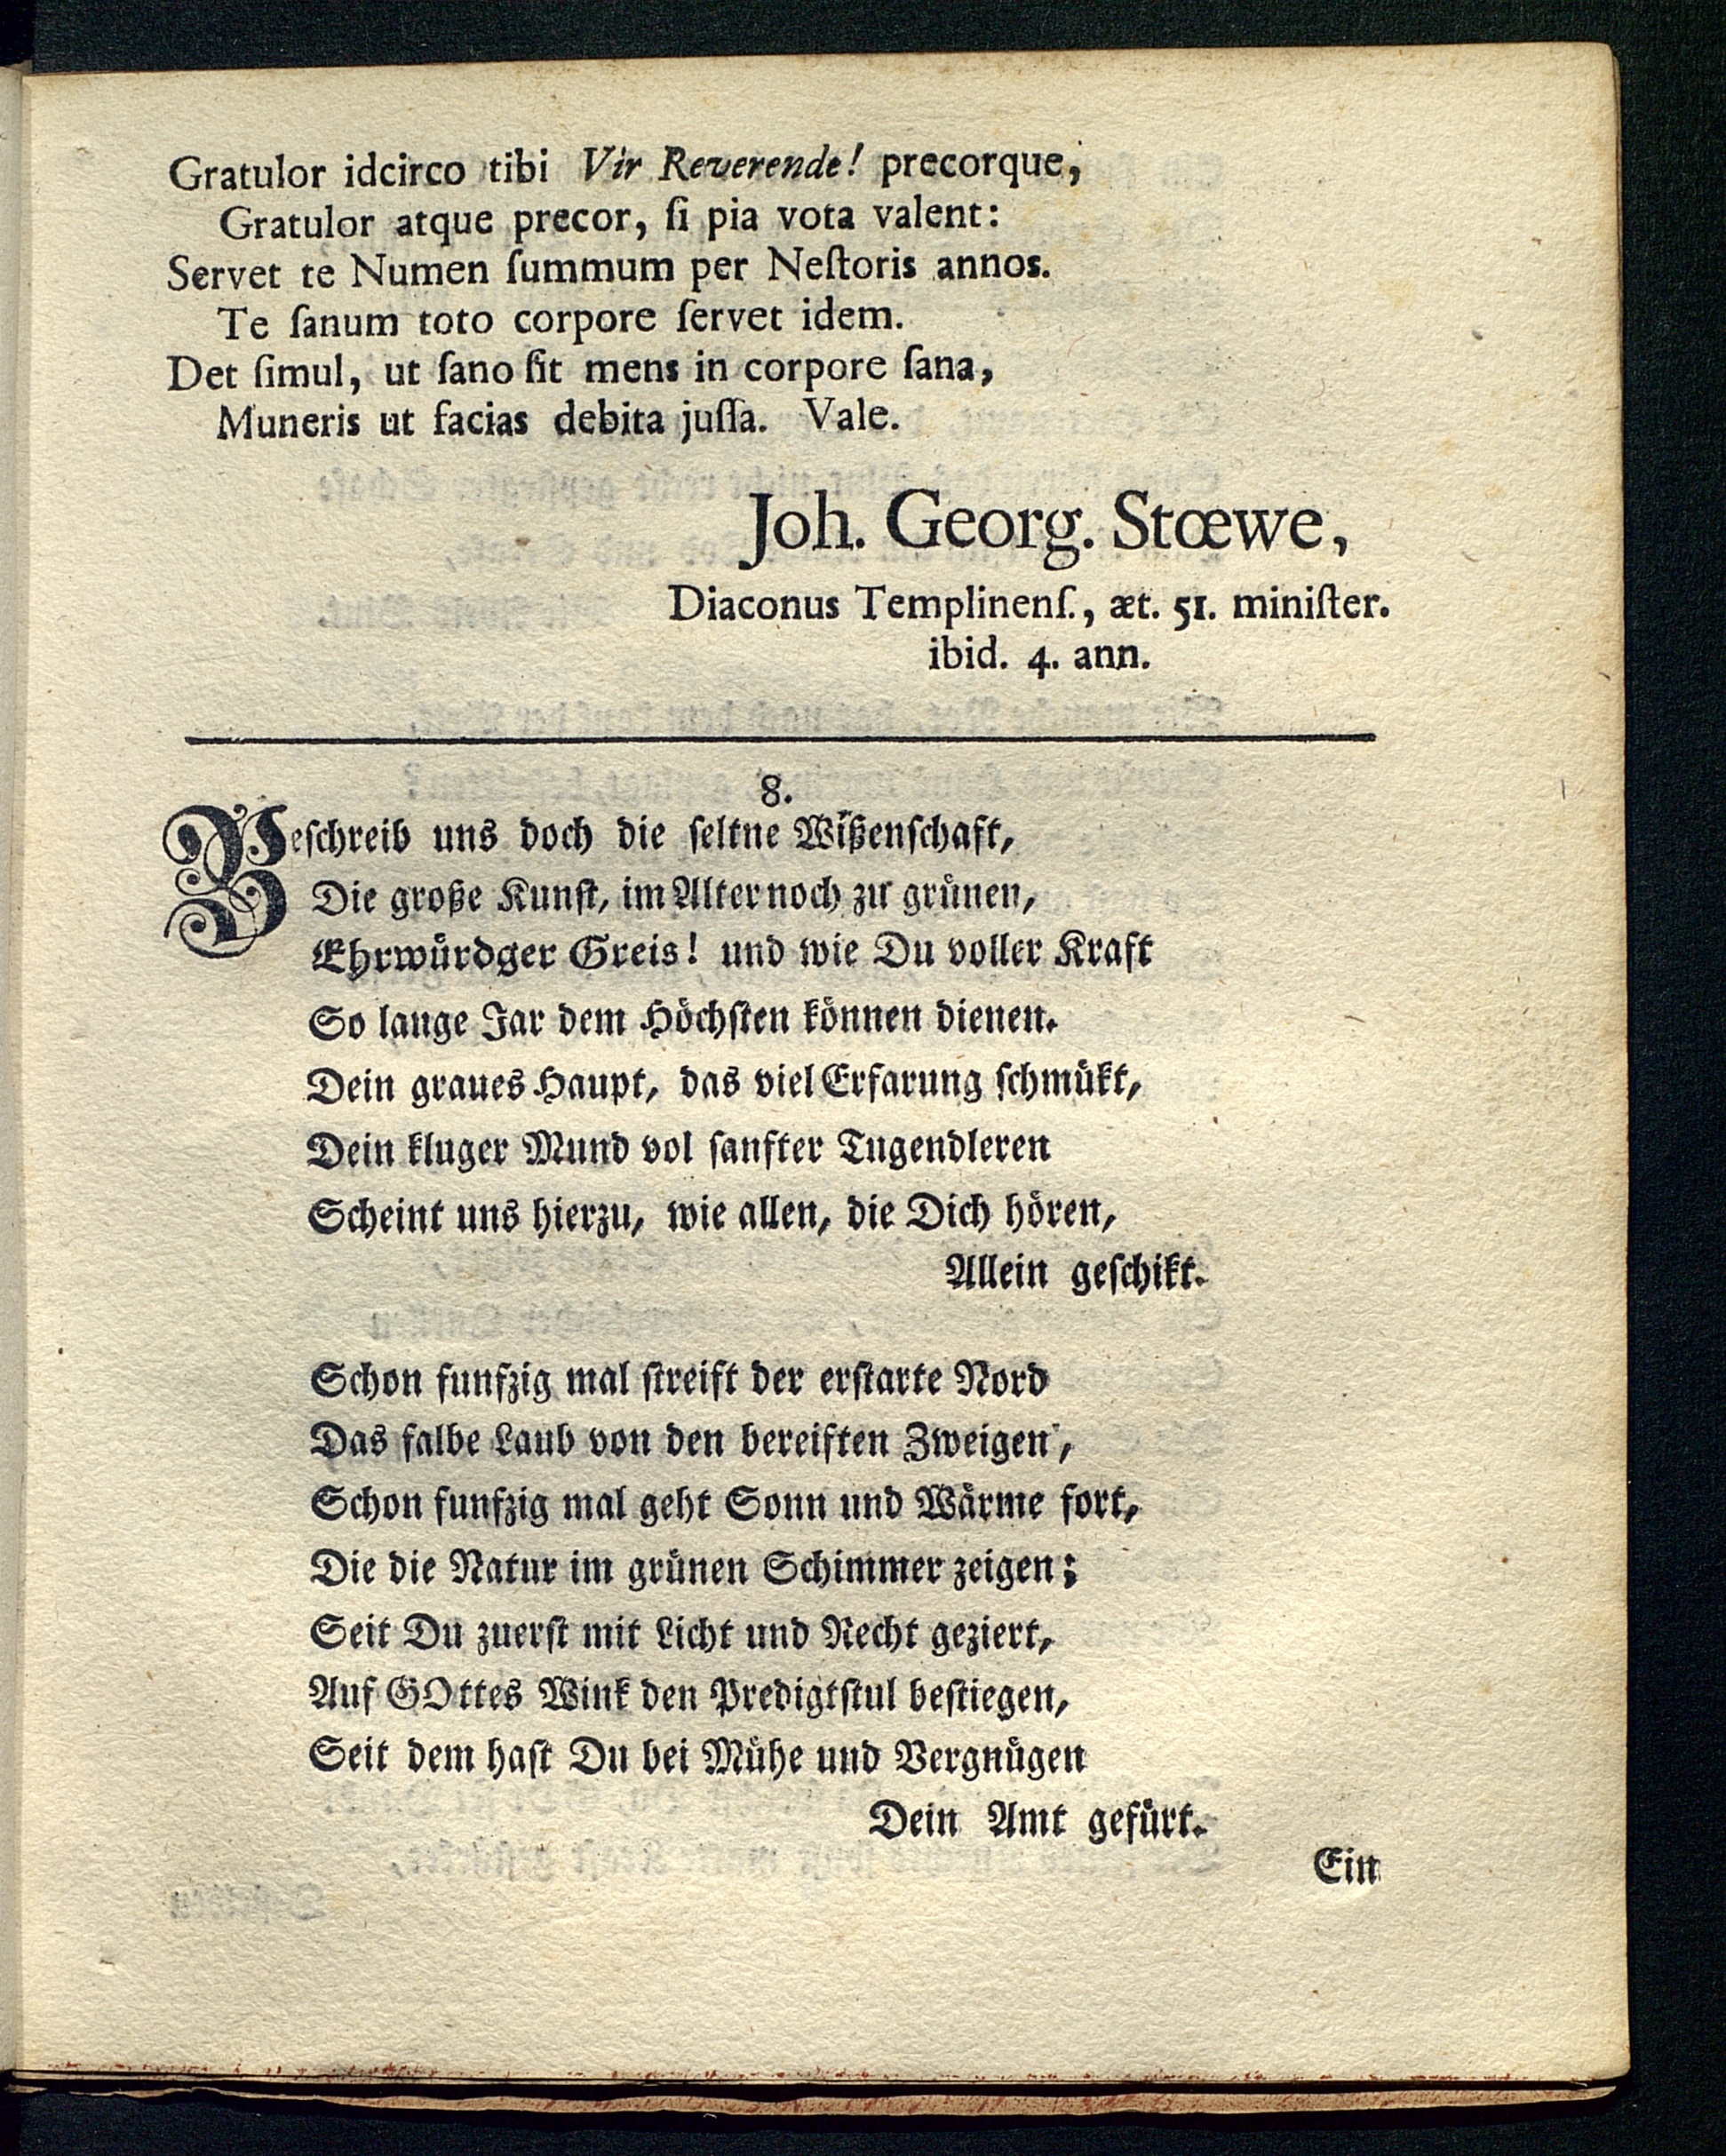 Gratulor idcirco tibi Vir Reverende! precorque,
Gratulor atque precor, ſi pia vota valent:
Servet te Numen ſummum per Neſtoris annos.
Te ſanum toto corpore ſervet idem.
Det ſimul, ut ſano ſit mens in corpore ſana,
Muneris ut facias debita juſſa. Vale.
Joh. Georg. Stœwe,
Diaconus Templinenſ., æt. 51. miniſter.
ibid. 4. ann.
8.
Beſchreib uns doch die ſeltne Wißenſchaft,
Die große Kunſt, im Alter noch zu grünen,
Ehrwürdger Greis! und wie Du voller Kraft
So lange Jar dem Höchſten können dienen.
Dein graues Haupt, das viel Erfarung ſchmükt,
Dein kluger Mund vol ſanfter Tugendleren
Scheint uns hierzu, wie allen, die Dich hören,
Allein geſchikt.
Schon funfzig mal ſtreift der erſtarte Nord
Das falbe Laub von den bereiften Zweigen,
Schon funfzig mal geht Sonn und Wärme fort,
Die die Natur im grünen Schimmer zeigen;
Seit Du zuerſt mit Licht und Recht geziert,
Auf GOttes Wink den Predigtſtul beſtiegen,
Seit dem haſt Du bei Mühe und Vergnügen
Dein Amt gefürt.
Ein